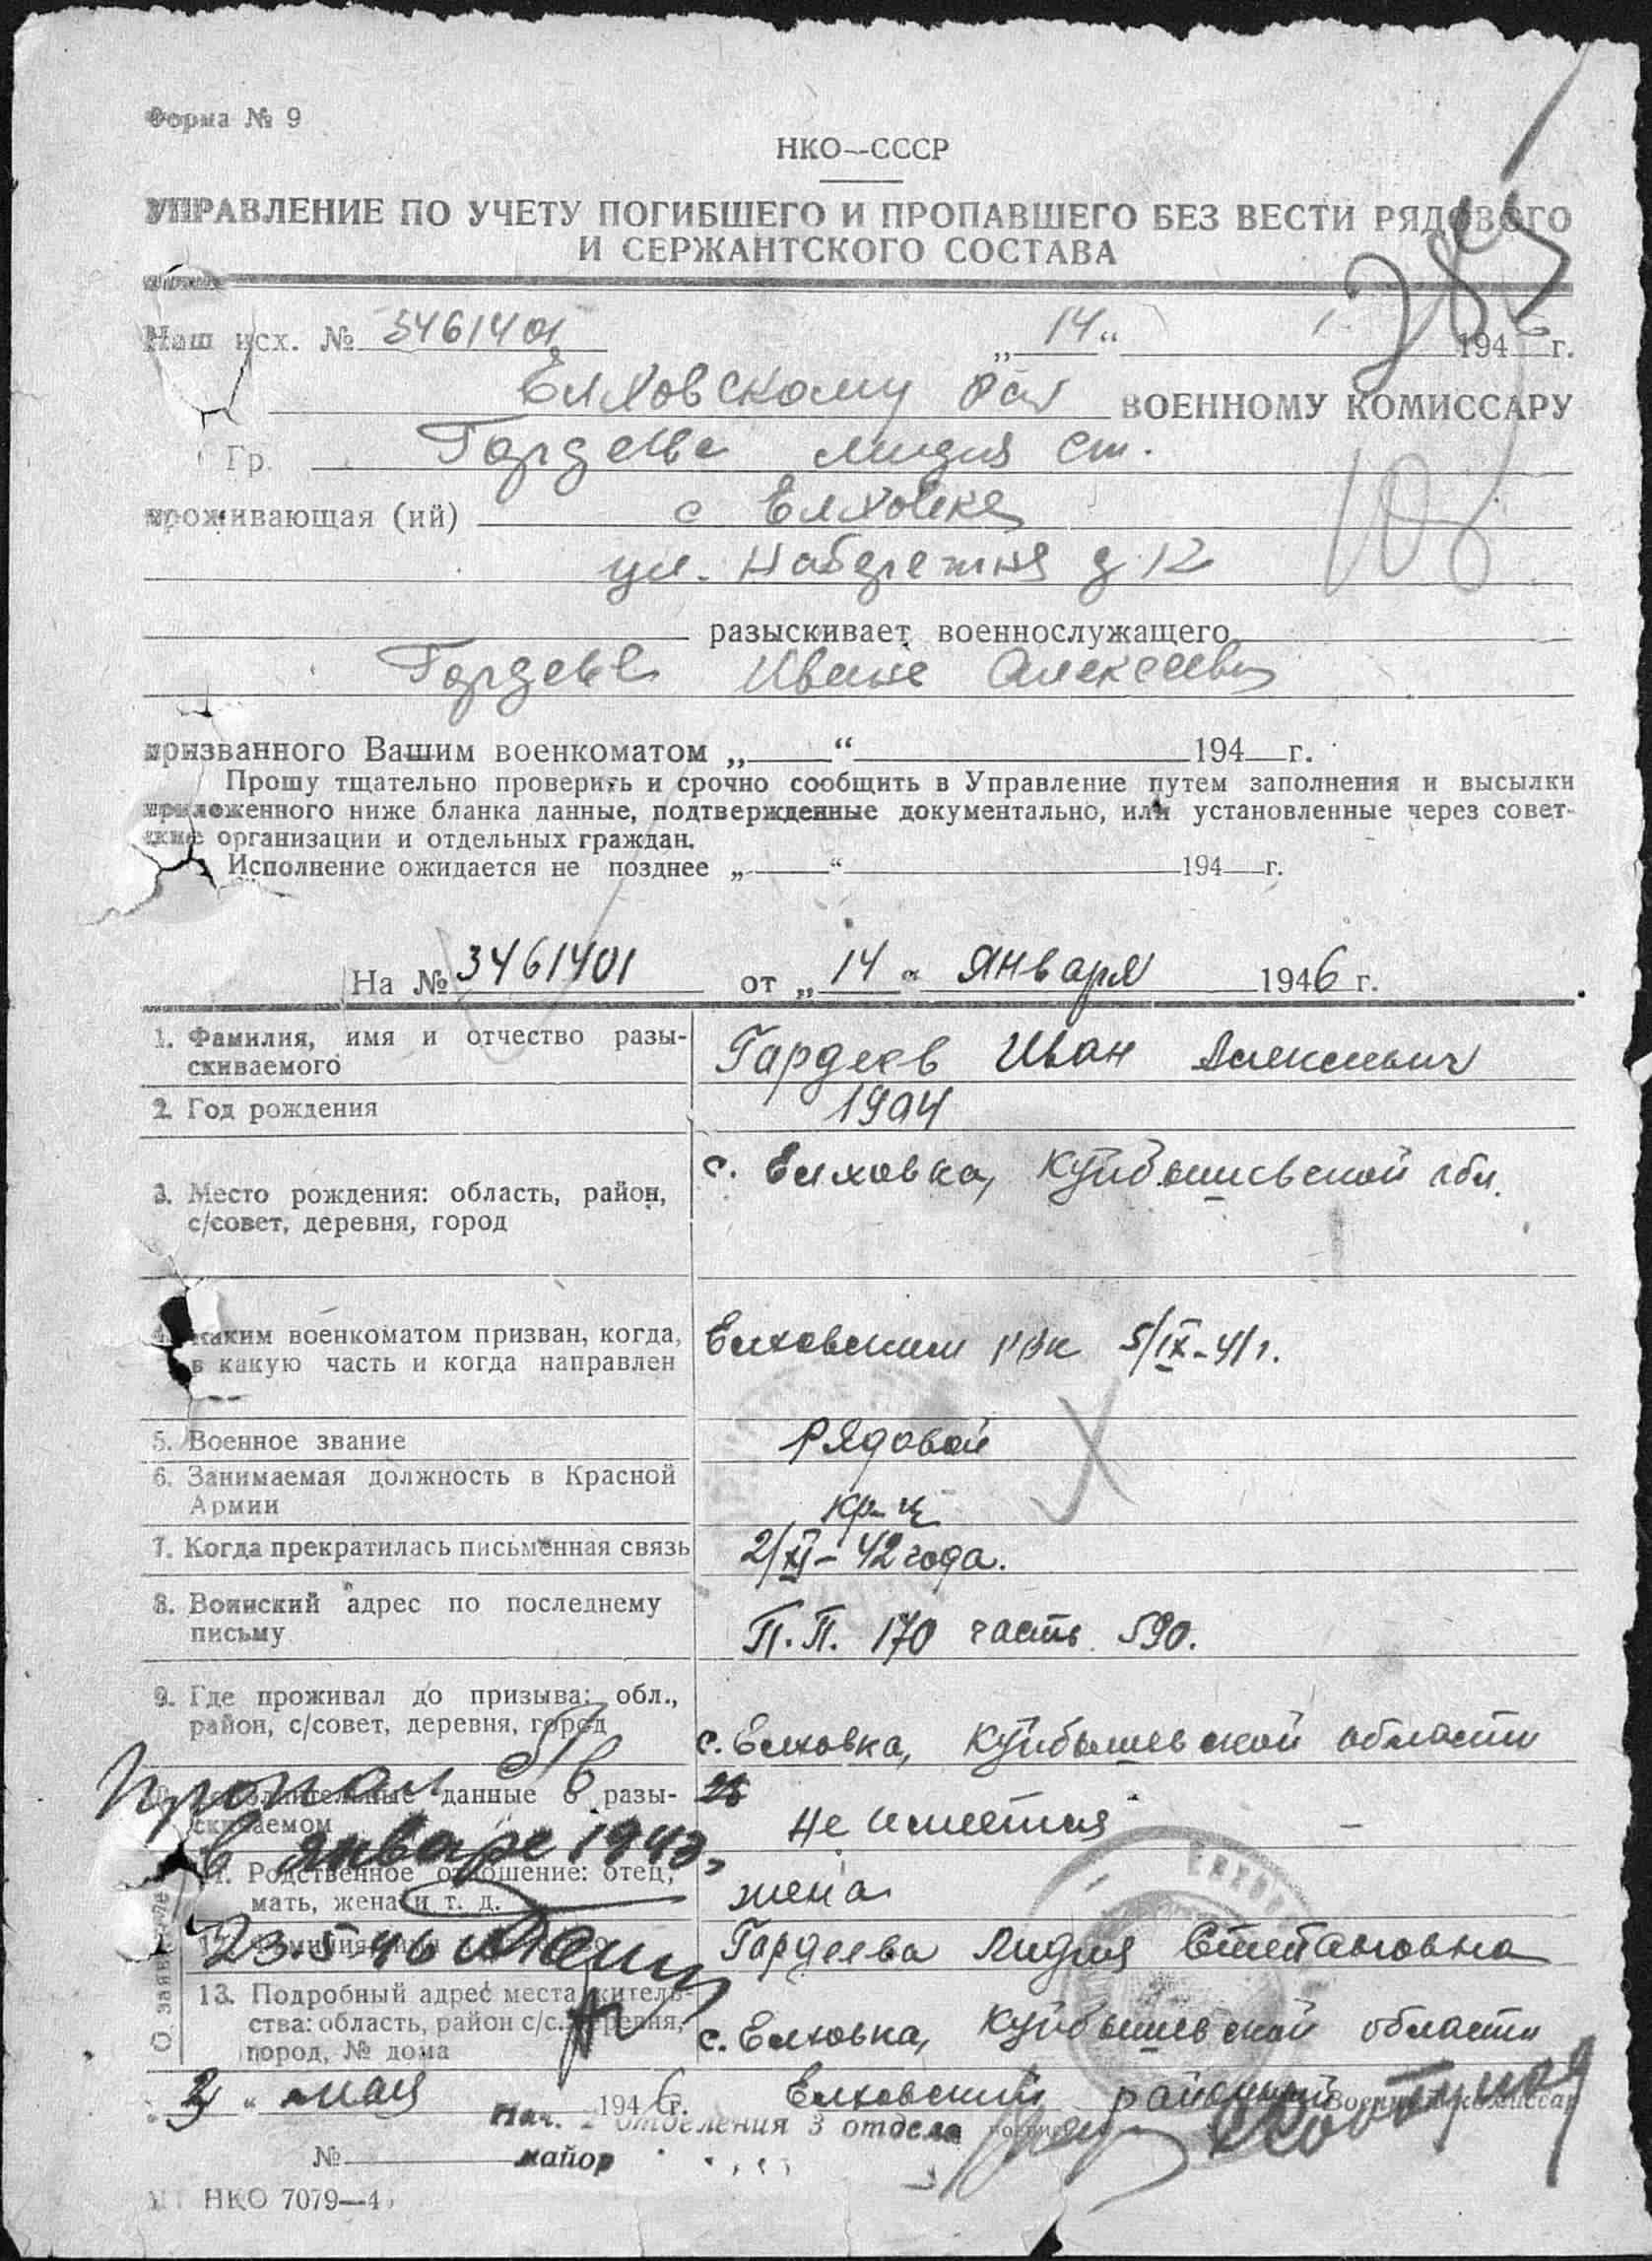 Форма № 9
НКО—СССР
УПРАВЛЕНИЕ ПО УЧЕТУ ПОГИБШЕГО И ПРОПАВШЕГО БЕЗ ВЕСТИ РЯДОВОГО
И СЕРЖАНТСКОГО СОСТАВА
285
Наш исх. № 3461401 „14“ 1 1946 г.
Елховскому рай ВОЕННОМУ КОМИССАРУ
Гр. Гордеева Лидия Ст.
проживающая (ий) с Елховке
ул. Набережная д 12
разыскивает военнослужащего
Гордеев Иван Алексеевич
призванного Вашим военкоматом „ “ 194 г.
Прошу тщательно проверить и срочно сообщить в Управление путем заполнения и высылки
приложенного ниже бланка данные, подтвержденные документально, или установленные через совет-
ские организации и отдельных граждан.
Исполнение ожидается не позднее „ “ 194 г.
На № 3461401 от „14“ Января 1946 г.
1. Фамилия, имя и отчество разы-
скиваемого
Гардеев Иван Алексеевич
2. Год рождения
1904
3. Место рождения: область, район,
с/совет, деревня, город
с. Елховка, Куйбышевской обл.
4. Каким военкоматом призван, когда,
в какую часть и когда направлен
Елховским РВК 5/IX-41 г.
5. Военное звание
Рядовой
6. Занимаемая должность в Красной
Армии
кр-ц
7. Когда прекратилась письменная связь
2/XI-42 года.
8. Воинский адрес по последнему
письму
П.П. 170 часть 590.
9. Где проживал до призыва: обл.,
район, с/совет, деревня, город
с. Елховка, Куйбышевской области
10. Дополнительные данные о разы-
скиваемом
Не имеется
Пропал б/в
в январе 1943,
11. Родственное отношение: отец,
мать, жена и т. д.
жена
23.5.46
Гардеева Лидия Степановна
13. Подробный адрес места житель-
ства: область, район с/с. деревня,
город, № дома
с. Елховка, Куйбышевской области
О заявителе
3 „ мая 1946 г. Елховский районный Военный комиссар
Нач. 2 отделения 3 отдела
подпись
№ майор
НКО 7079—4